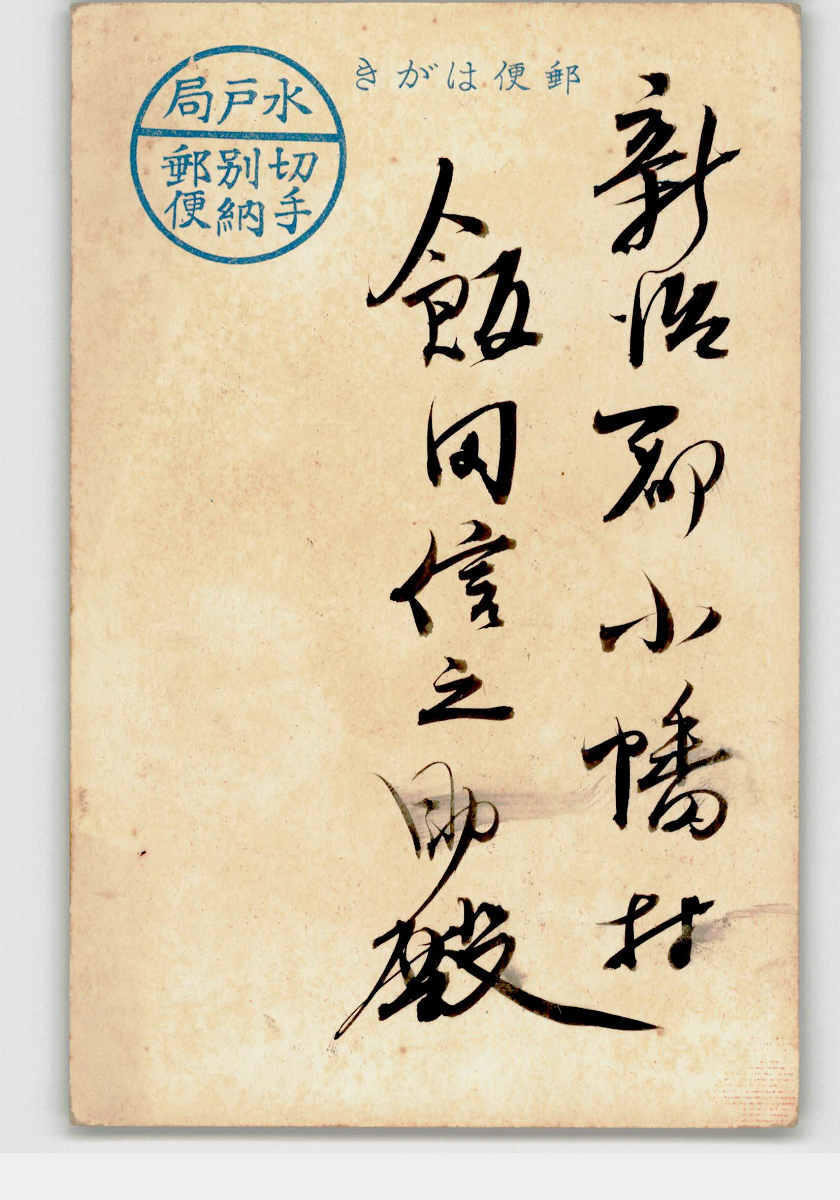 郵便はがき
水戸局
切手
別納
郵便
新治郡小幡村
飯田信之助殿